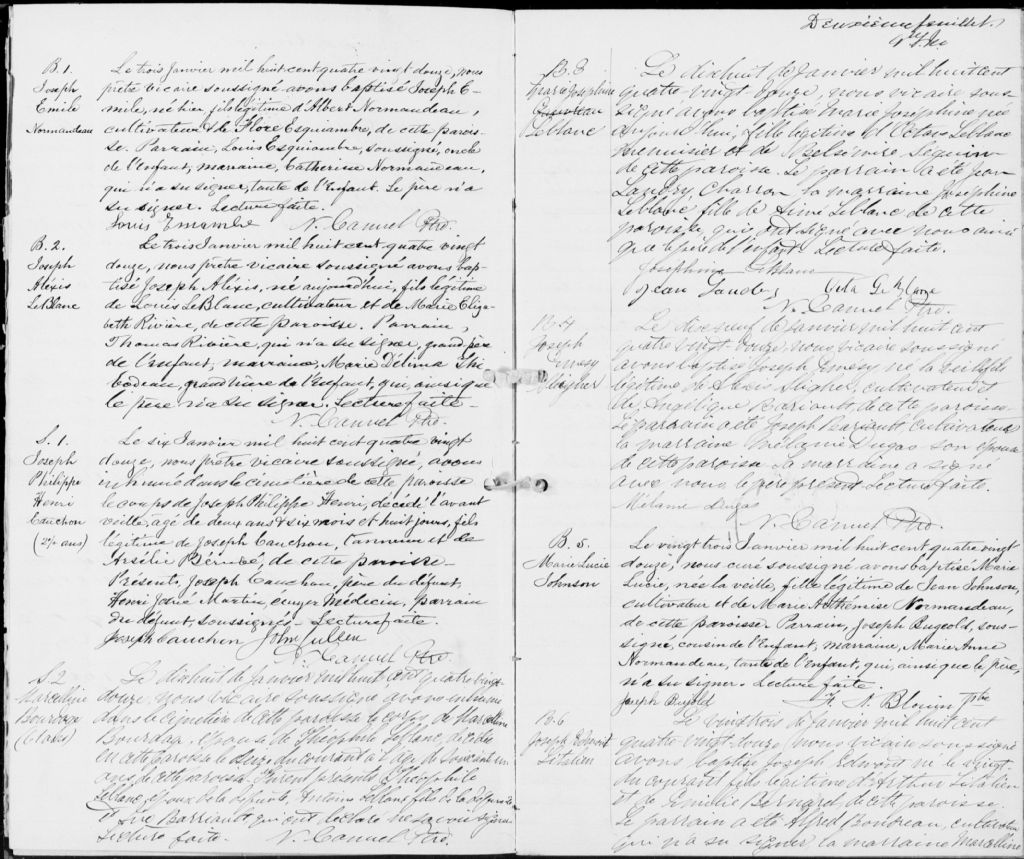 B. 1.
Joseph
Emile
Normandeau
Le trois Janvier mil huit cent quatre vingt douze, nous
prêtre vicaire soussigné avons baptisé Joseph E-
mile, né hier, fils légitime d'Albert Normandeau,
cultivateur & de Flore Esquiambre, de cette parois-
se. Parrain, Louis Esquiambre, soussigné, oncle
de l'Enfant, marraine, Catherine Normandeau,
qui n'a su signer, tante de l'Enfant. Le père n'a
su signer. Lecture faite.
Louis N. Canuel Ptre.
B. 2.
Joseph
Alexis
LeBlanc
Le trois Janvier mil huit cent quatre vingt
douze, nous prêtre vicaire soussigné avons bap-
tisé Joseph Alexis, né aujourd'hui, fils légitime
de Louis LeBlanc, cultivateur et de Marie Eliza-
beth Rivière, de cette paroisse. Parrain,
Thomas Rivière, qui n'a su signer, grand-père
de l'Enfant; marraine, Marie Délima Thi-
bodeau, grand'mère de l'Enfant, qui, ainsi que
le père n'a su signer. Lecture faite.
N. Canuel Ptre.
S. 1.
Joseph
Philippe
Henri
Cauchon
(2½ ans)
Le six Janvier mil huit cent quatre vingt
douze, nous prêtre vicaire soussigné, avons
inhumé dans le cimetière de cette paroisse
le corps de Joseph Philippe Henri, décédé l'avant
veille, agé de deux ans & six mois et huit jours, fils
légitime de Joseph Cauchon, et de
Arsélie Bérubé, de cette paroisse.
Présents, Joseph Cauchon, père du défunt,
Henri Josué Martin, écuyer Médecin, parrain
du défunt, soussignés. Lecture faite.
Joseph Cauchon John Cullen
N. Canuel Ptre.
S. 2
Marcelline
Bourdage
(61 ans)
Le dixhuit de Janvier mil huit cent quatre vingt
douze, nous vicaire soussigné avons inhumé
dans le cimetière de cette paroisse le corps de Marcelline
Bourdage, épouse de Théophile Leblanc, décédée
en cette paroisse le du courant à l'age de soixante un
ans de cette paroisse. Furent présents Théophile
Leblanc, époux de la défunte, Antoine Leblanc fils de la défunte
et Barriault qui ont déclaré ne savoir signer
Lecture faite. N. Canuel Ptre.
Deuxième feuillet.
B. 3
Marie Josephine
Leblanc
Le dixhuit de Janvier mil huit cent
quatre vingt douze, nous vicaire sous-
signé avons baptisé Marie Josephine née
aujourd'hui, fille légitime d'Octave Leblanc
menuisier et de Belsémire Seguin
de cette paroisse. Le parrain a été Jean
Landry, Charron la marraine Josephine
Leblanc fille de Aimé Leblanc de cette
paroisse, qui ont signé avec nous ainsi
que le père de l'enfant. Lecture faite.
Josephine
Jean Landry
N. Canuel Ptre.
B. 4
Joseph
Le dixneuf de Janvier mil huit cent
quatre vingt douze, nous vicaire soussigné
avons baptisé Joseph né la veille fils
légitime de cultivateur et
de Angélique Barriault de cette paroisse.
Le parrain a été Joseph Barriault, cultivateur
la marraine Mélanie Dugas son épouse
de cette paroisse. La marraine a signé
avec nous le père Lecture faite.
Mélanie Dugas
N. Canuel Ptre.
B. 5.
Marie Lucie
Johnson
Le vingt trois Janvier mil huit cent quatre vingt
douze, nous curé soussigné avons baptisé Marie
Lucie, née la veille, fille légitime de Jean Johnson,
cultivateur et de Marie Arthémise Normandeau,
de cette paroisse. Parrain, Joseph Bugold, sous-
signé, cousin de l'Enfant, marraine, Marie Anne
Normandeau, tante de l'enfant, qui, ainsi que le père,
n'a su signer. Lecture faite
Joseph Bugold Blouin Ptre
B. 6
Joseph Edmont
Le vingt trois de Janvier mil huit cent
quatre vingt douze, nous vicaire soussigné
avons baptisé Joseph Edmont né le vingt
du courant fils légitime d'Arthur
et de Emélie Bernard de cette paroisse.
Le parrain a été Alfred Boudreau, cultivateur
qui n'a su signer la marraine Marcelline